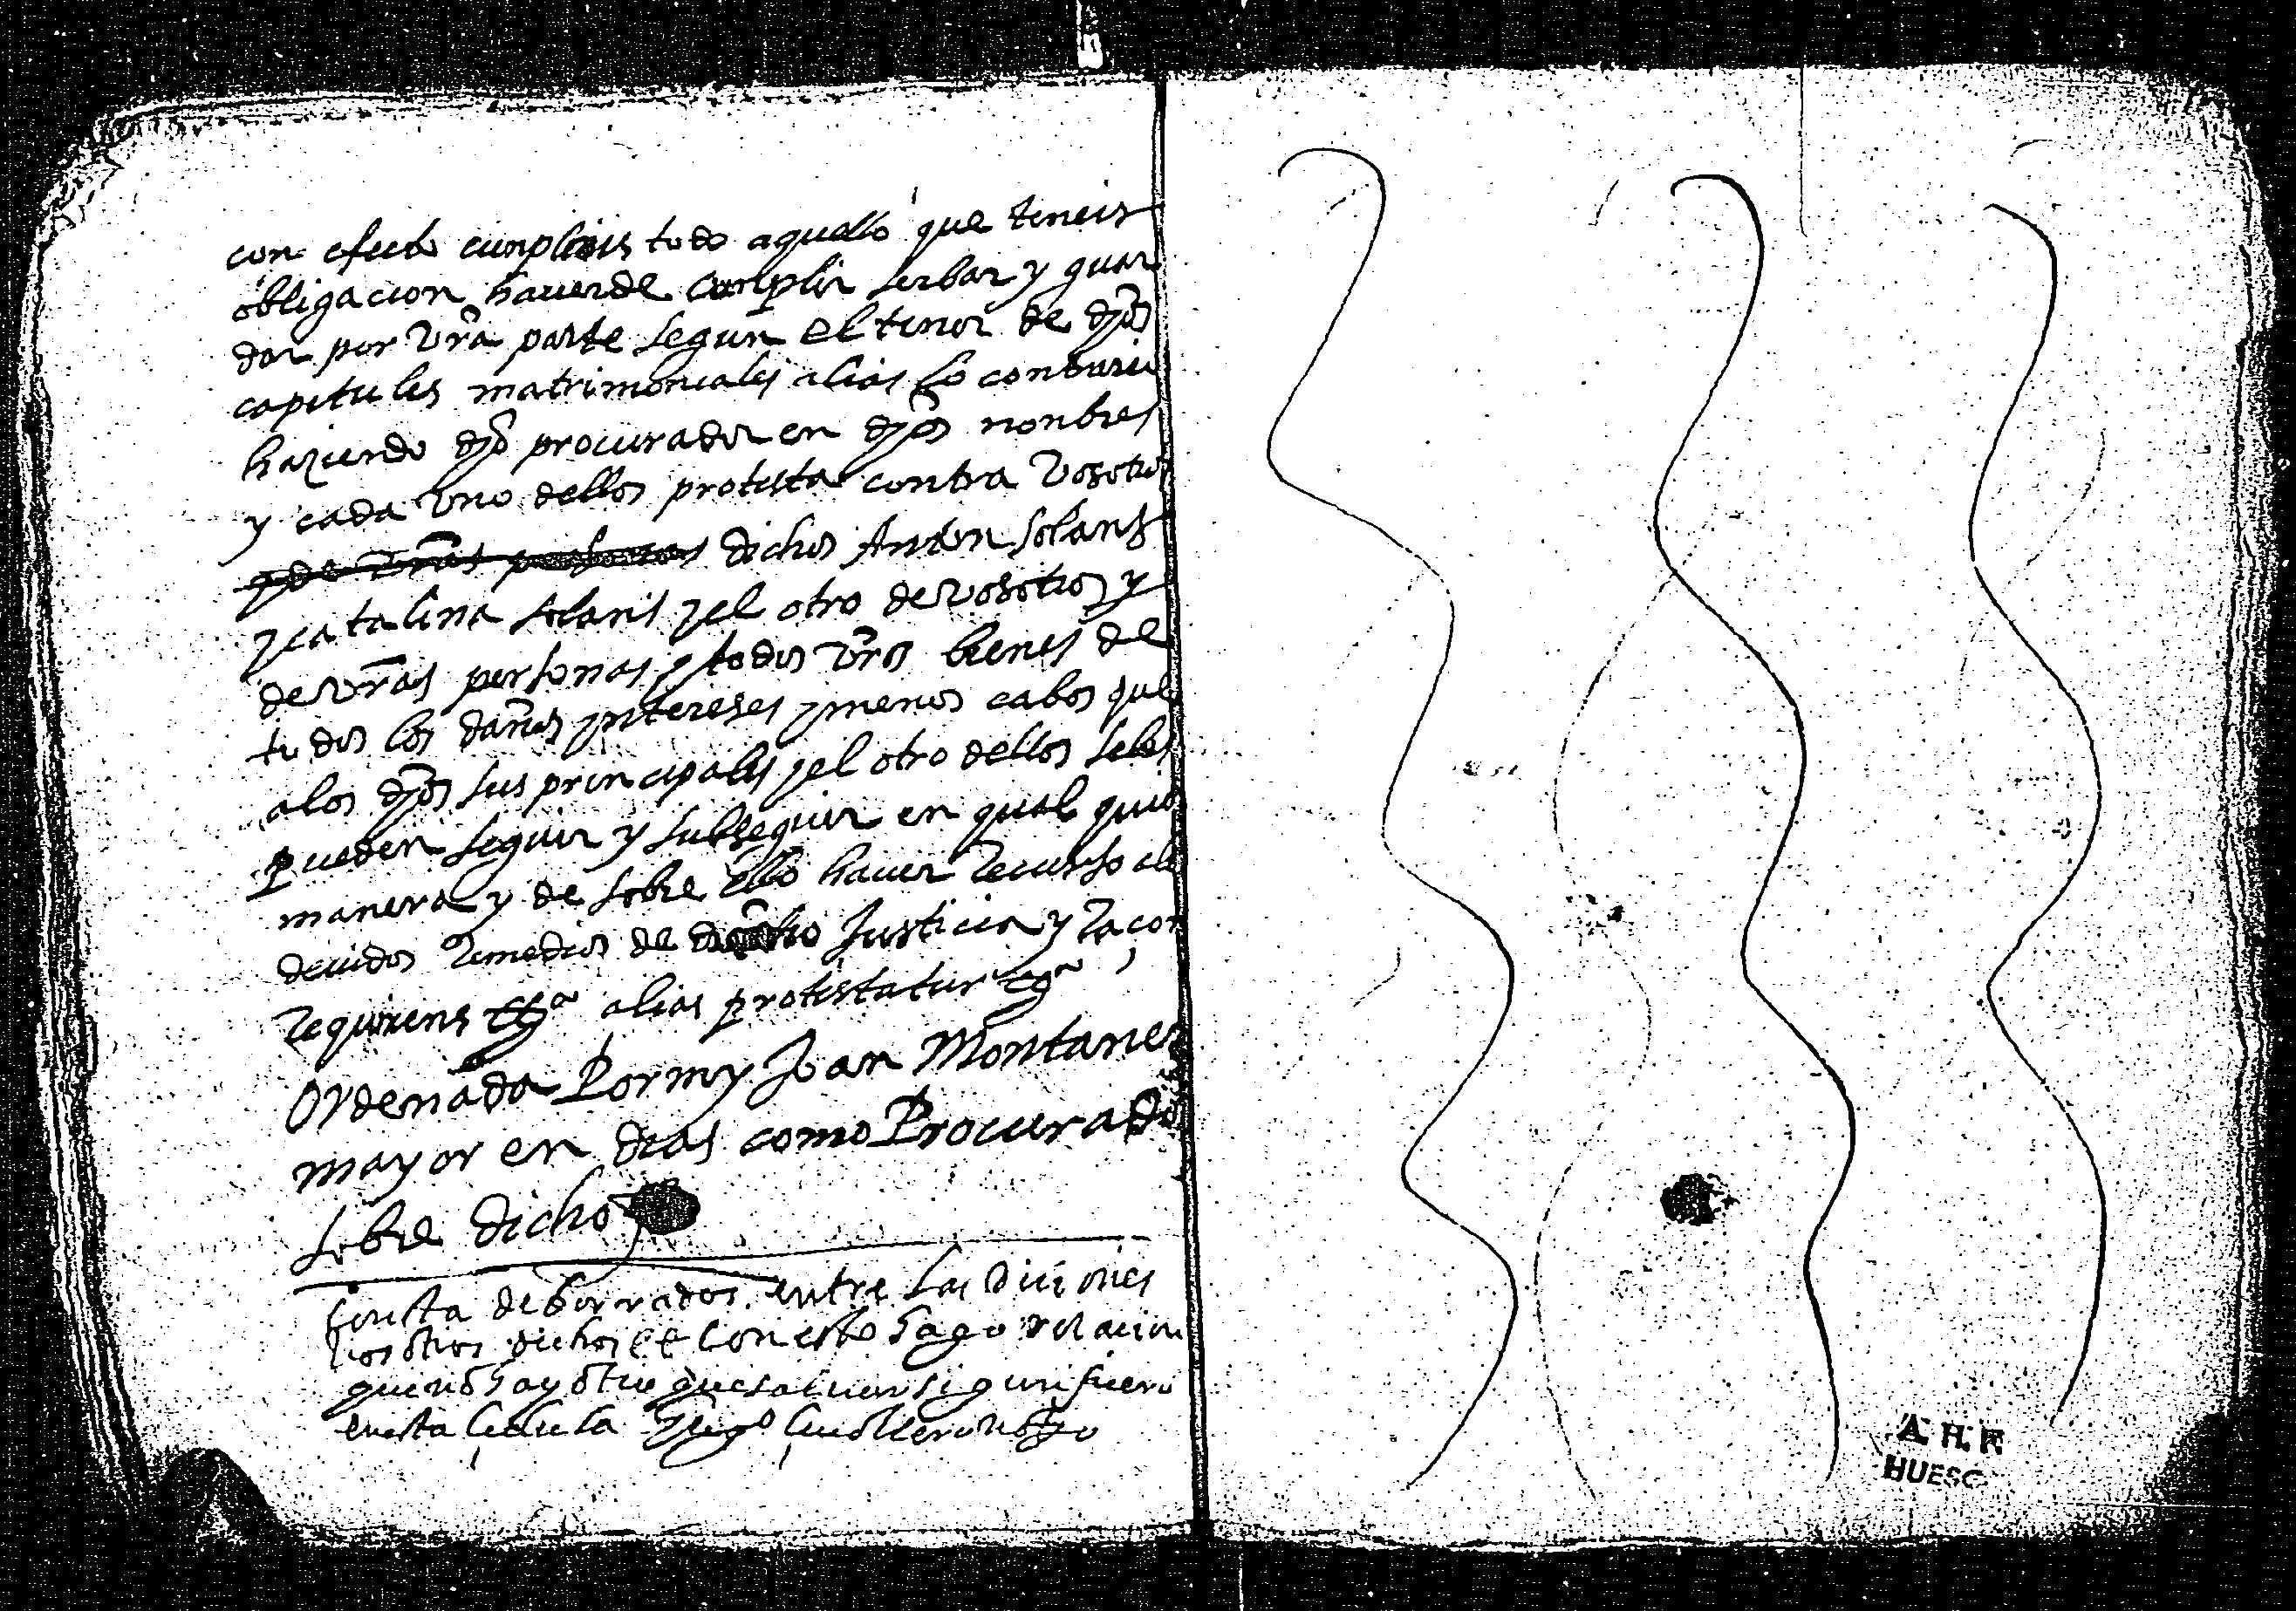 con efecto cunplais todo aquello que teneis
obligacion hauer de cunplir serbar y guar
dar por vr̃a parte segun el tenor de dh̃os
capitules matrimoniales alias lo contrario
haziendo dh̃o procurador en dh̃os nonbres
y cada vno dellos protesta contra vosotros
y de vr̃as personas dichos Anton Solans
y catalina solans y el otro de vosotros y
de vr̃as personas y todos vr̃os bienes de
todos los daños yntereses y menos cabos que
a los dh̃os sus principales y el otro dellos se les
pueden seguir y subseguir en qual quier
manera y de sobre ello hauer recurso a los
deuidos remedios de Justicia y racon
requirens alias protestatur
Ordenada Por my Joan Montaner
mayor en dias como Procurador
sobre dicho
Consta de borrados entre las diciones
vosotros dichos con esto hago relacion
que no hay otro que saluar sigun fuero
en esta cedula
A. H. P.
HUESC